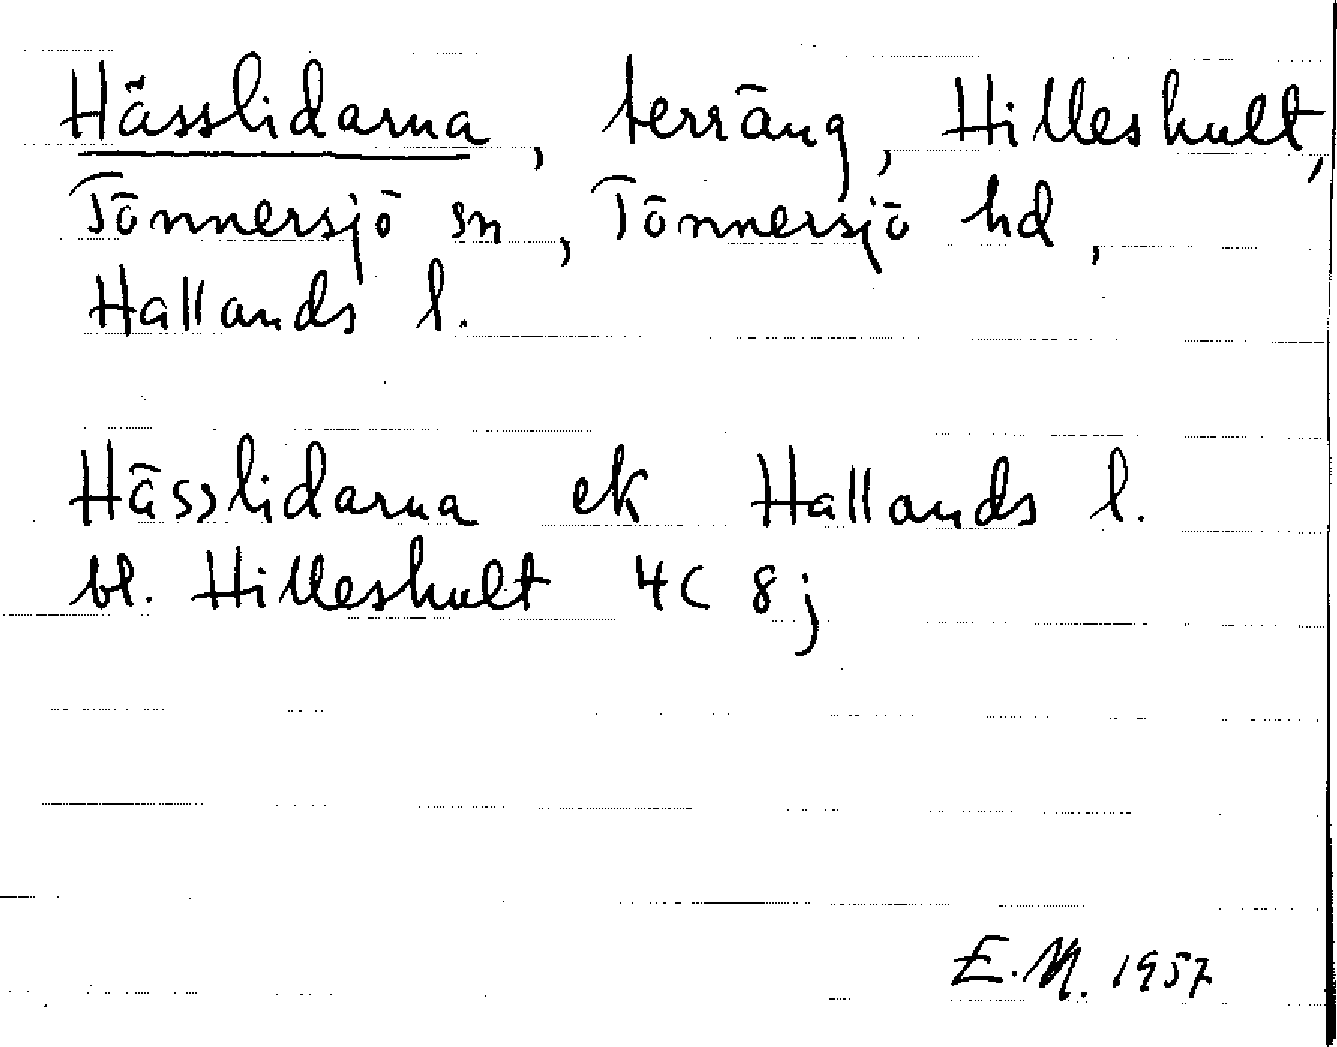 Hässlidarna, terräng, Hilleshult,
Tönnersjö sn, Tönnersjö hd,
Hallands l.
Hässlidarna ek Hallands l.
bl. Hilleshult 4C 8j
E.M. 1957